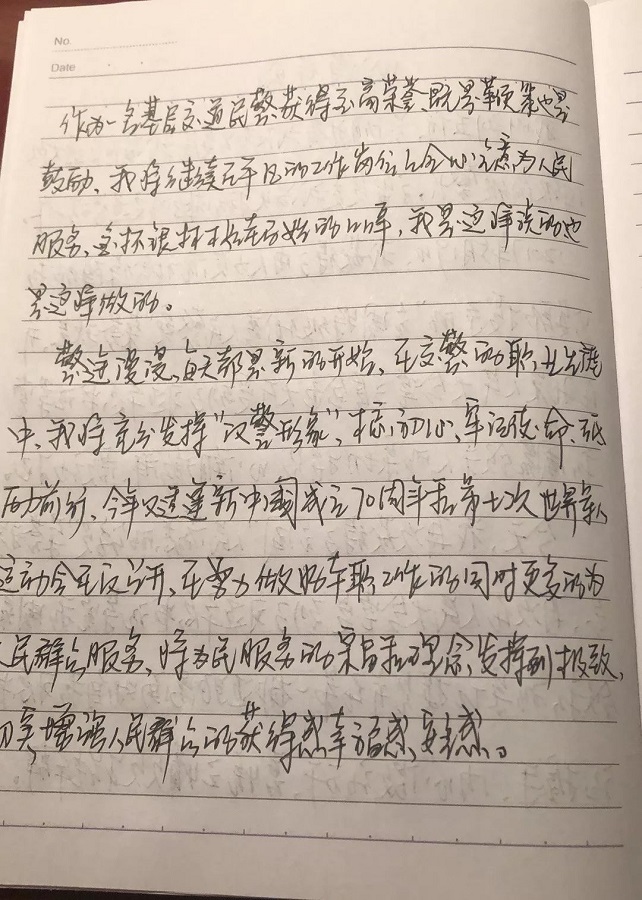 No.
Date
作为一名基层交通民警,获得至高荣誉,既是鞭策也是
鼓励、我将继续在平凡的工作岗位上全心全意为人民
服务、的口碑,我是这样说的也
是这样做的。
警途漫漫,每天都是新的开始、在交警的职业生涯
中、我将充分发挥“汉警形象”,初心、牢记使命、砥
砺前行、今年又适逢新中国成立70周年和第七次世界军人
运动会在汉召开、在努力做好本职工作的同时更多的为
人民群众服务、将为民服务的宗旨和理念,发挥到极致、
切实增强人民群众的获得感幸福感、安全感。